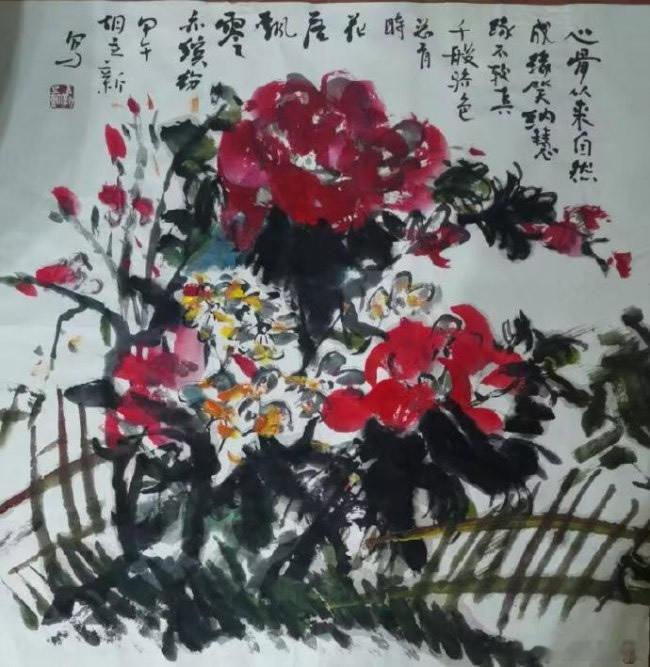 心骨从来自然
成缘笑纳慧
缘不较真
千般路色
总有
時
花
落
飘
零
亦缤纷
甲午
胡立新
写